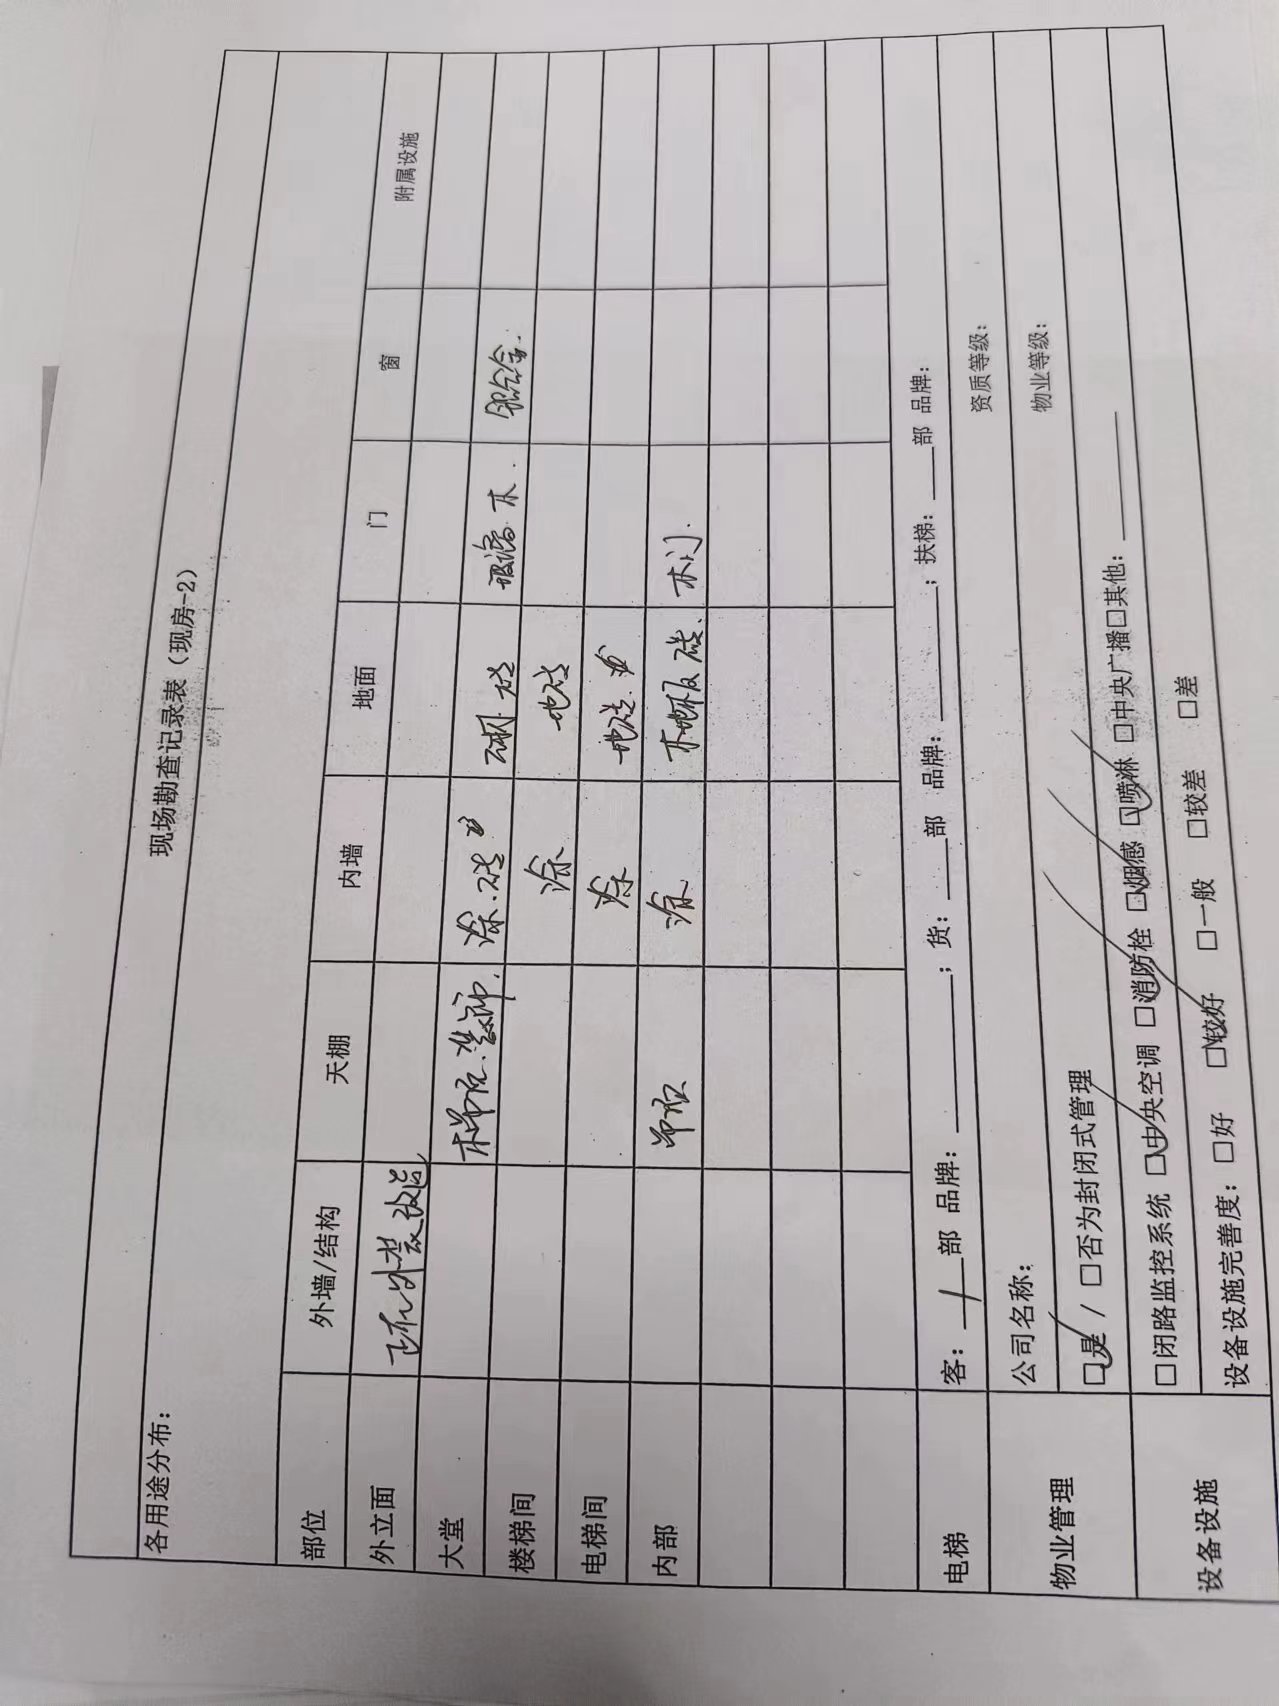 现场勘查记录表（现房-2）
各用途分布：
部位 外墙/结构 天棚 内墙 地面 门 窗 附属设施
外立面 正在外装改造
大堂 木吊顶.装饰. 涂.砖 砖 玻璃.木. 铝合金.
楼梯间 涂 地砖
电梯间 涂 地砖.
内部 吊顶 涂 木地板.砖. 木门.
电梯 客：1部 品牌：______；货：____部 品牌：______；扶梯：____部 品牌：
物业管理 公司名称： 资质等级：
☑是 / □否为封闭式管理 物业等级：
设备设施 □闭路监控系统 ☑中央空调 ☑消防栓 ☑烟感 ☑喷淋 □中央广播□其他：______
设备设施完善度：□好 ☑较好 □一般 □较差 □差